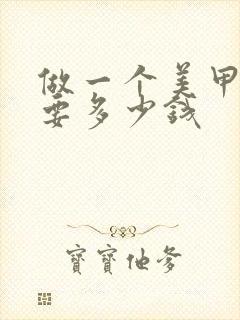 做一个美甲
要多少钱
寶寶他爹